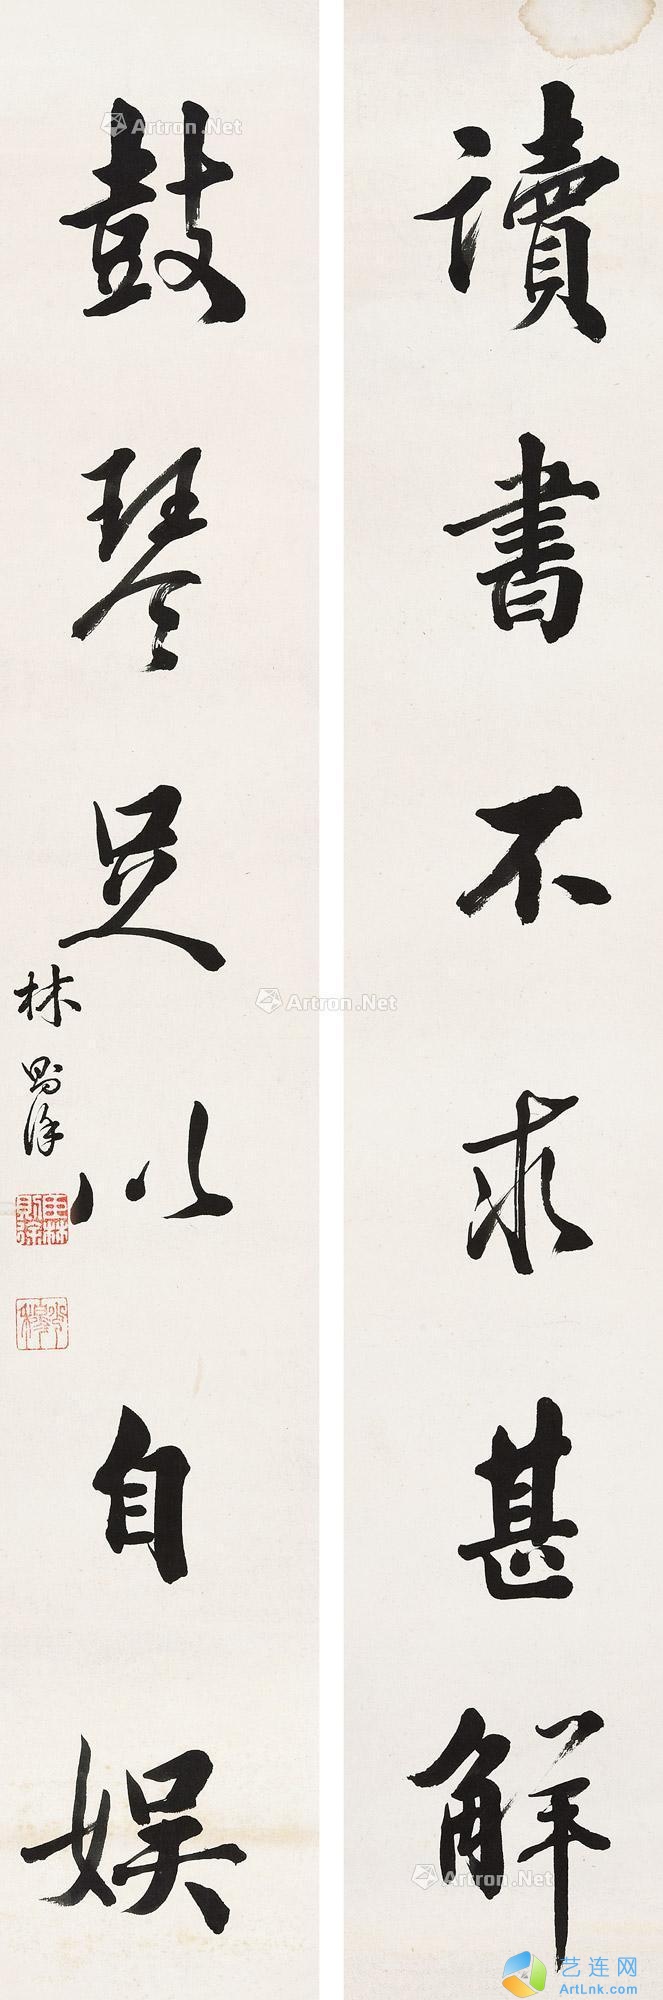 讀書不求甚解
鼓琴足以自娱
林則徐
臣林則徐
Artron.Net
Artron.Net
Artron.Net
艺连网
ArtLnk.com